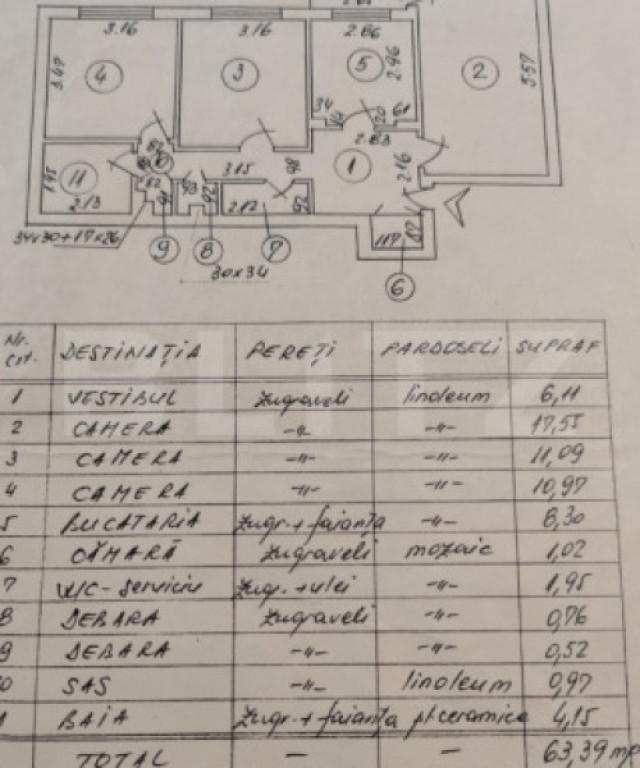 3.16 3.16 2.86
3.49 4 3 5 2.96 2 5.57
34 14 20 61
82 2.83
10 3.15 98 1 2.16
1.95 11 82
2.13 93 92 2.12 92
117 87
34x30+17x26 9 8 7
30x34 6
Nr. Crt. DESTINAȚIA PEREȚI PARDOSELI SUPRAF
1 VESTIBUL zugraveli linoleum 6,11
2 CAMERA -〃- -〃- 17,55
3 CAMERA -〃- -〃- 11,09
4 CAMERA -〃- -〃- 10,97
5 BUCATARIA zugr.+faianța -〃- 8,30
6 CĂMARĂ zugraveli mozaic 1,02
7 W/C-serviciu zugr.+ulei -〃- 1,95
8 DEBARA zugraveli -〃- 0,76
9 DEBARA -〃- -〃- 0,52
10 SAS -〃- linoleum 0,97
11 BAIA zugr.+faianța pl.ceramica 4,15
TOTAL — — 63,39 mp
BLITZ